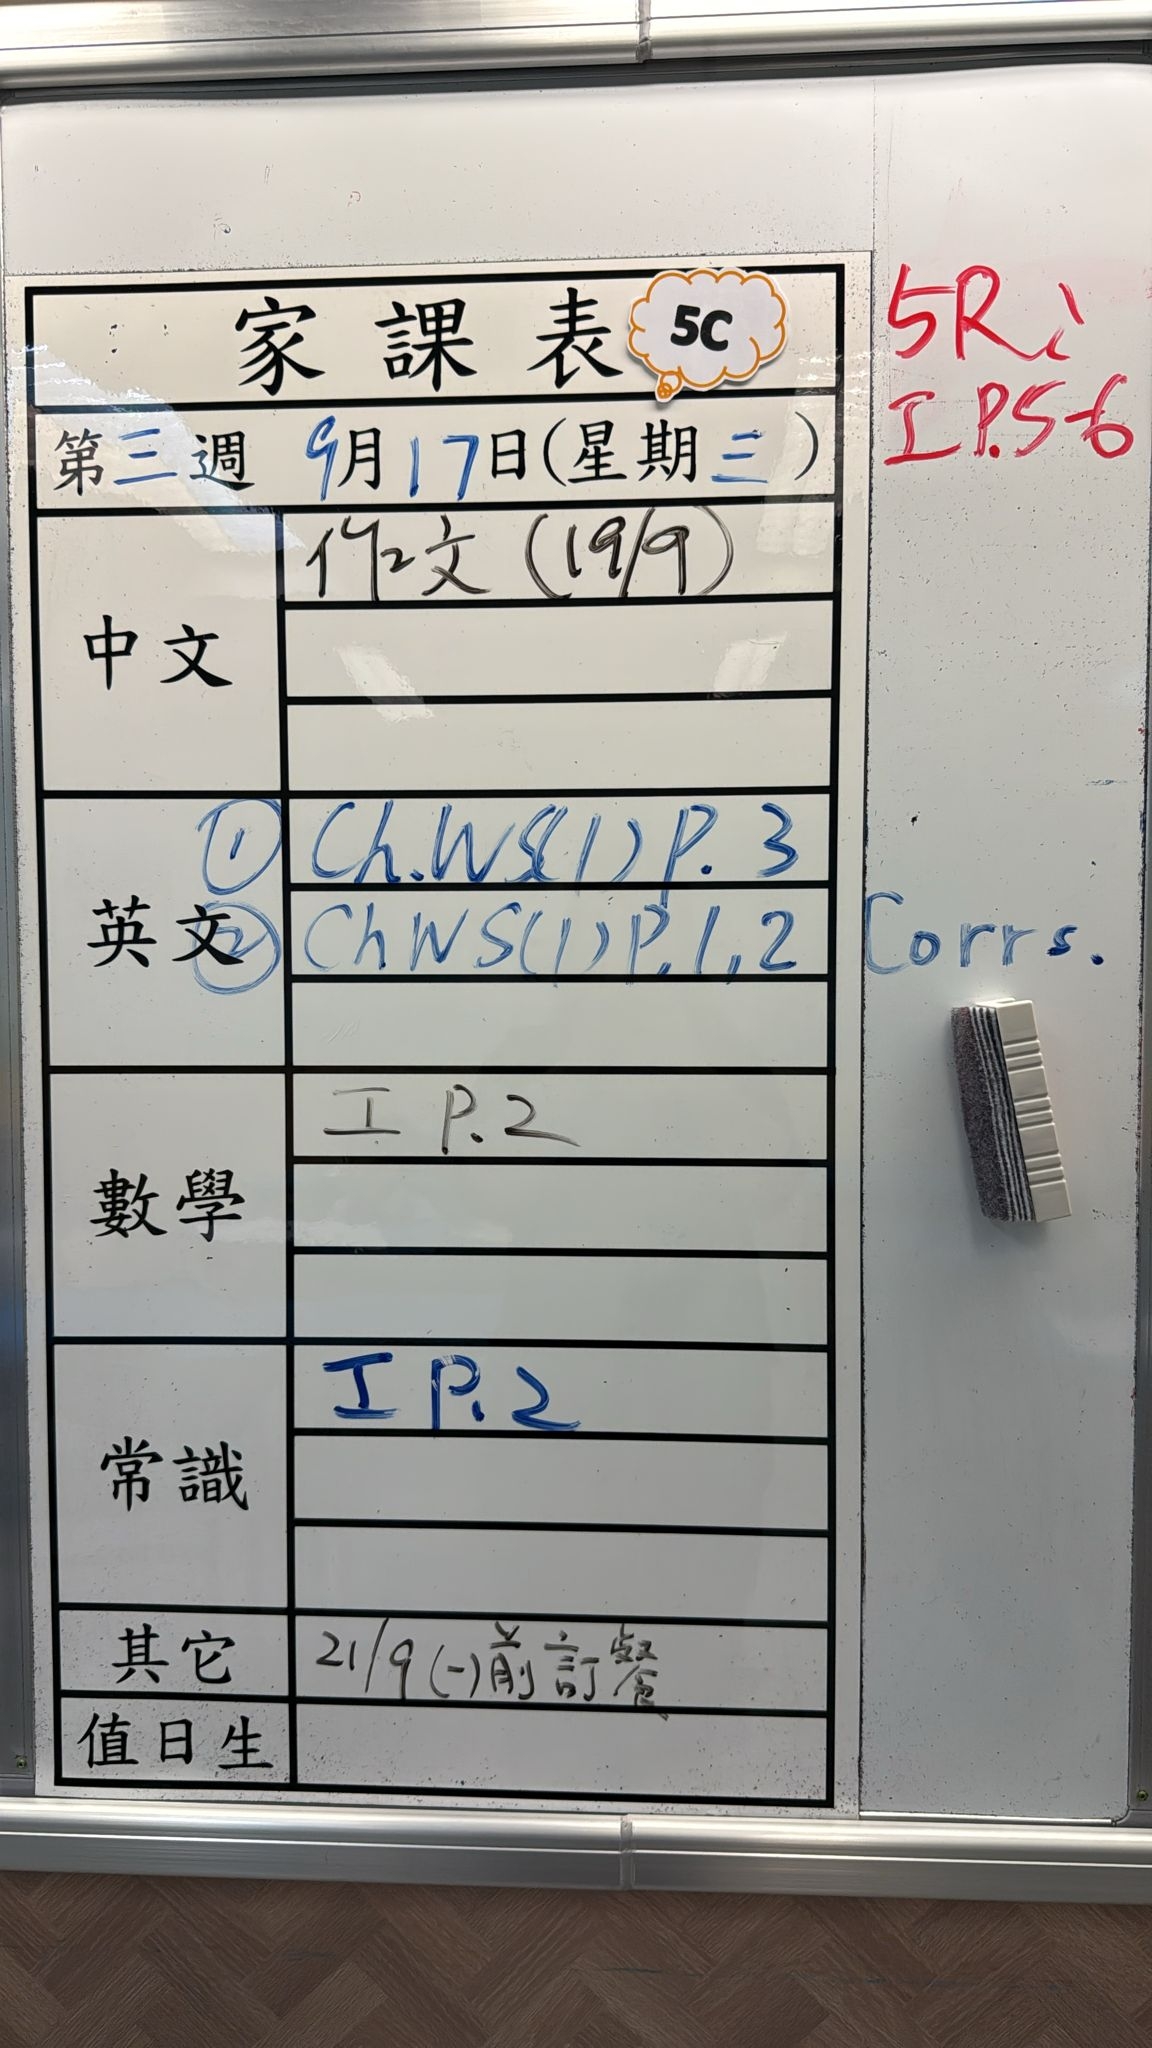 家課表 5C
第三週 9月17日(星期三)
中文
作文 (19/9)
英文
① Ch.WS(1) P. 3
② Ch WS(1) P.1,2 Corrs.
數學
I P.2
常識
I P.2
其它
21/9 (一)前訂餐
值日生
5R
I P.5-6